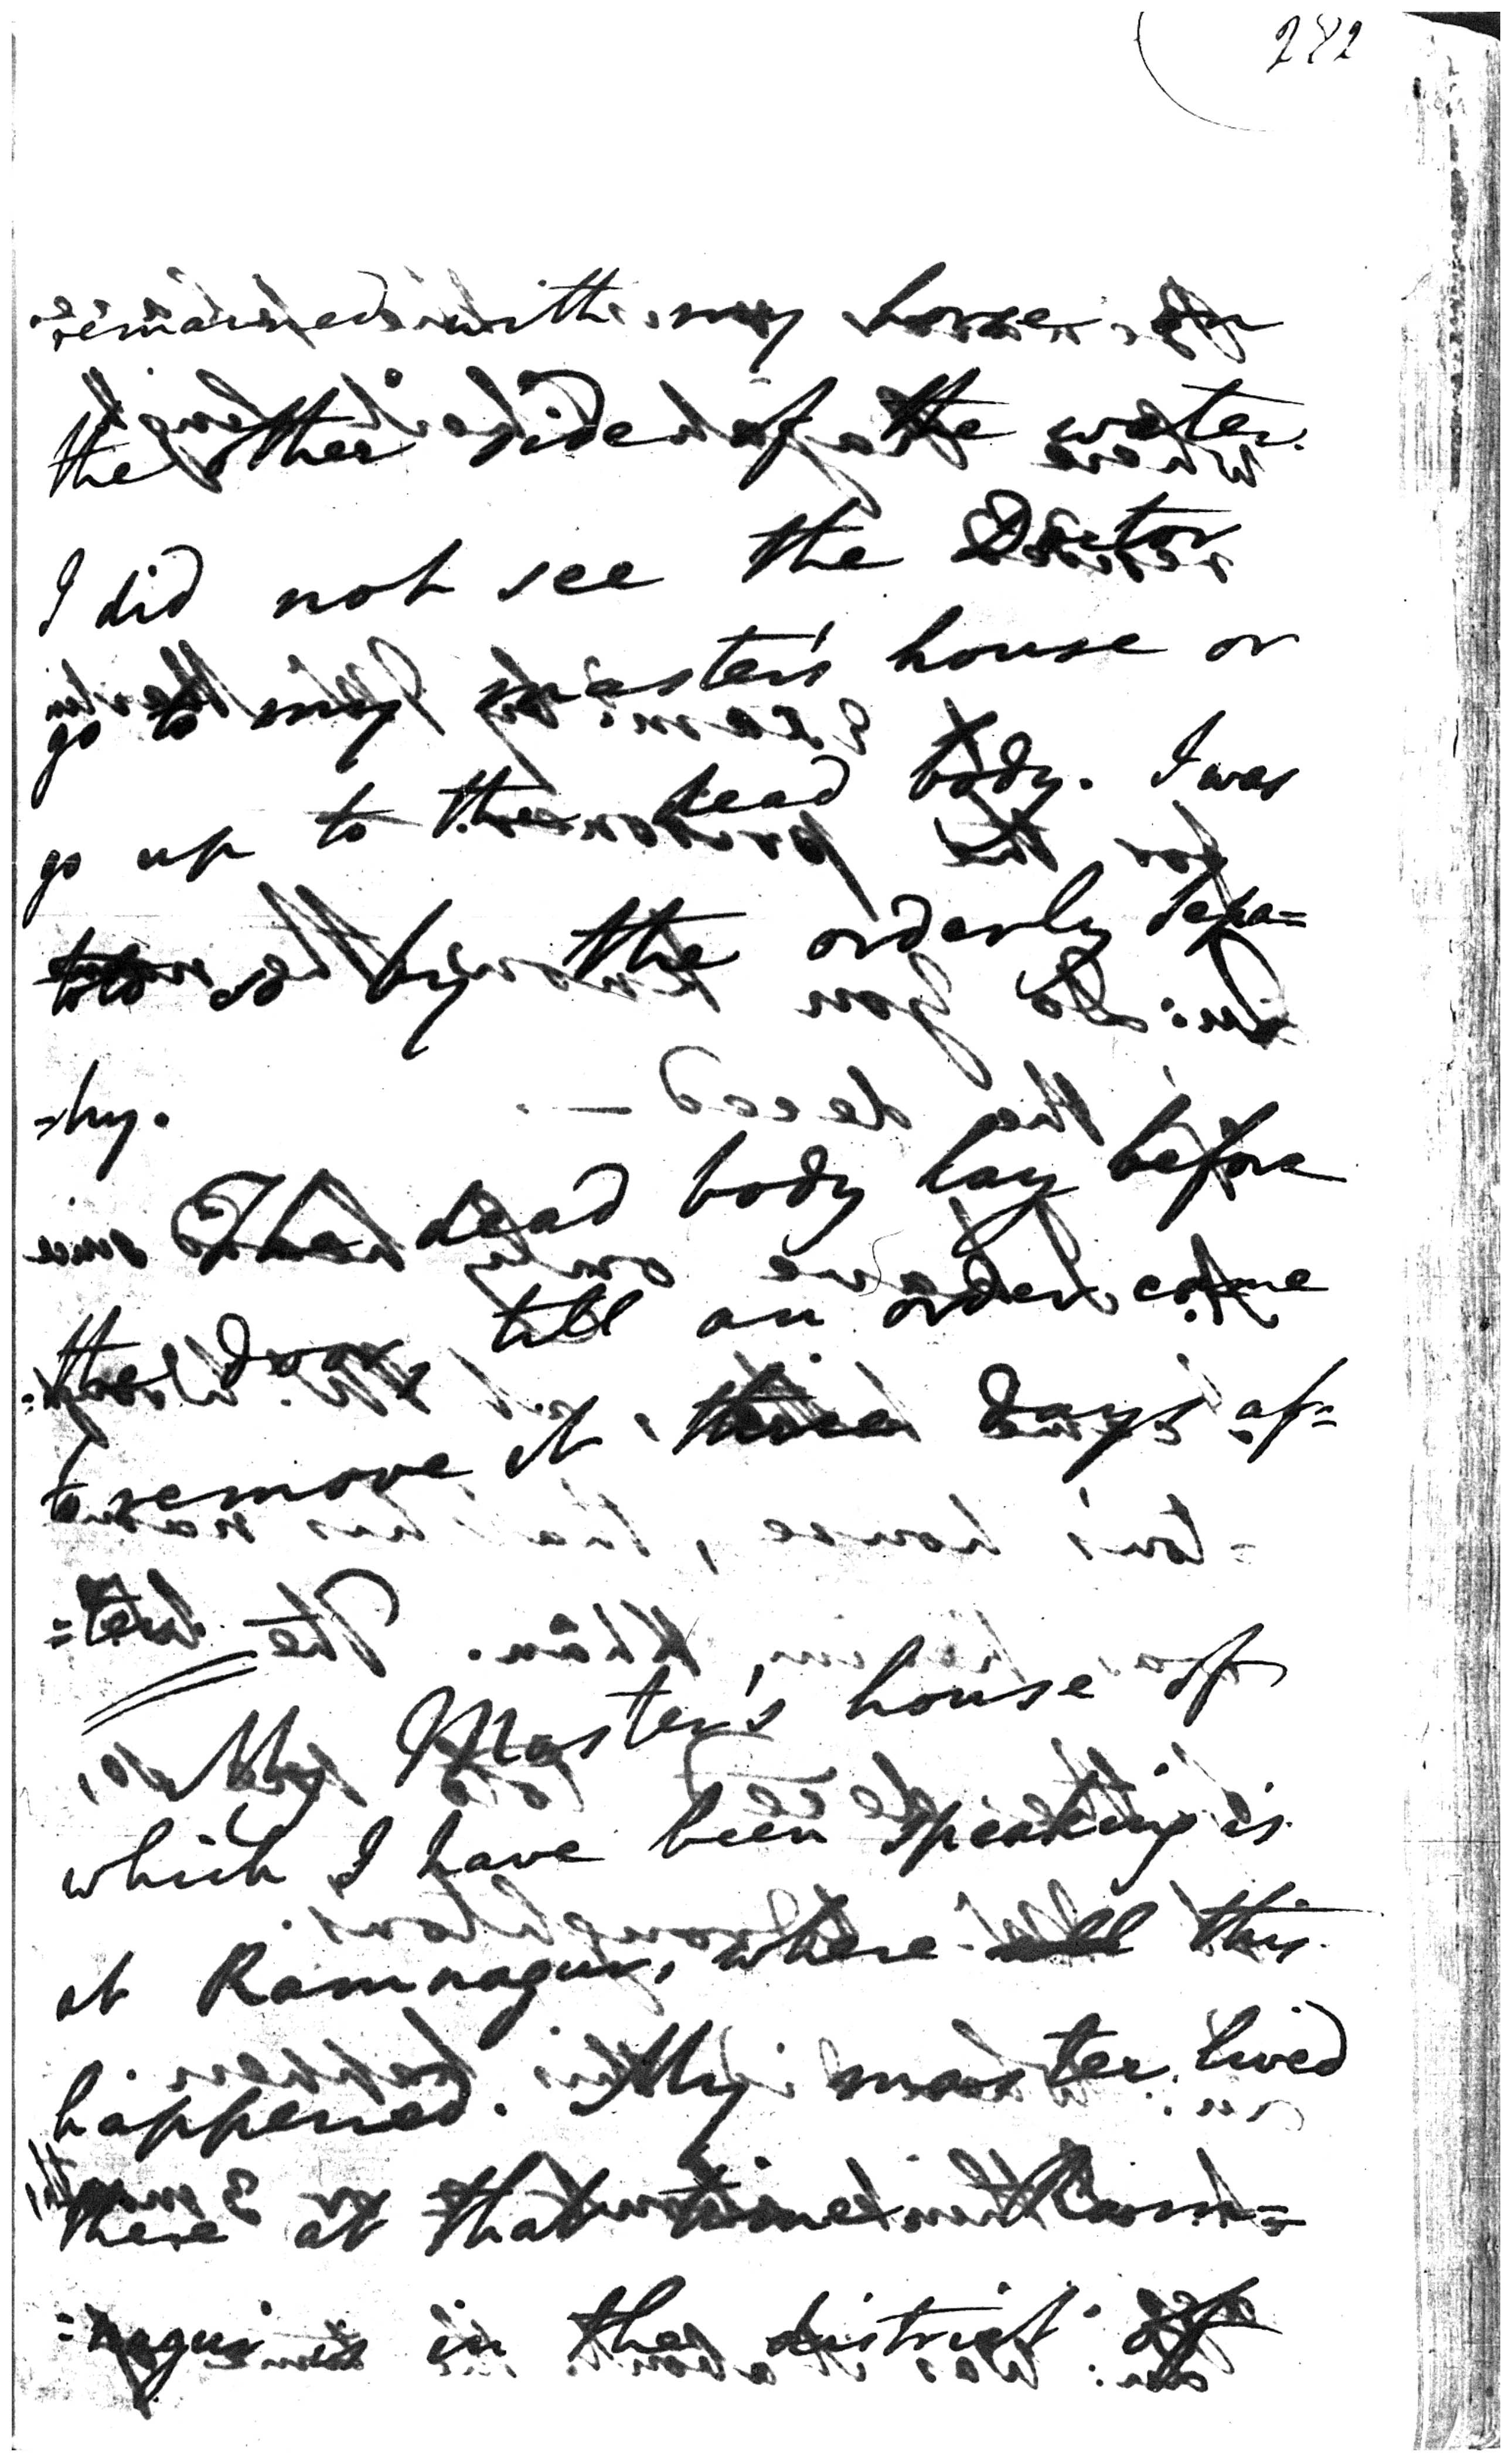 282
remained with my horse on
the other side of the water.
I did not see the Doctor
go to my master's house or
go up to the dead body. I was
told so by the orderly sepa=
=hy.
The dead body lay before
the door, till an order came
to remove it three days af=
=ter.
My Master's house of
which I have been speaking is
at Ramnagur, where all this
happened. My master lived
there at that time. Ram=
=nagur is in the district of